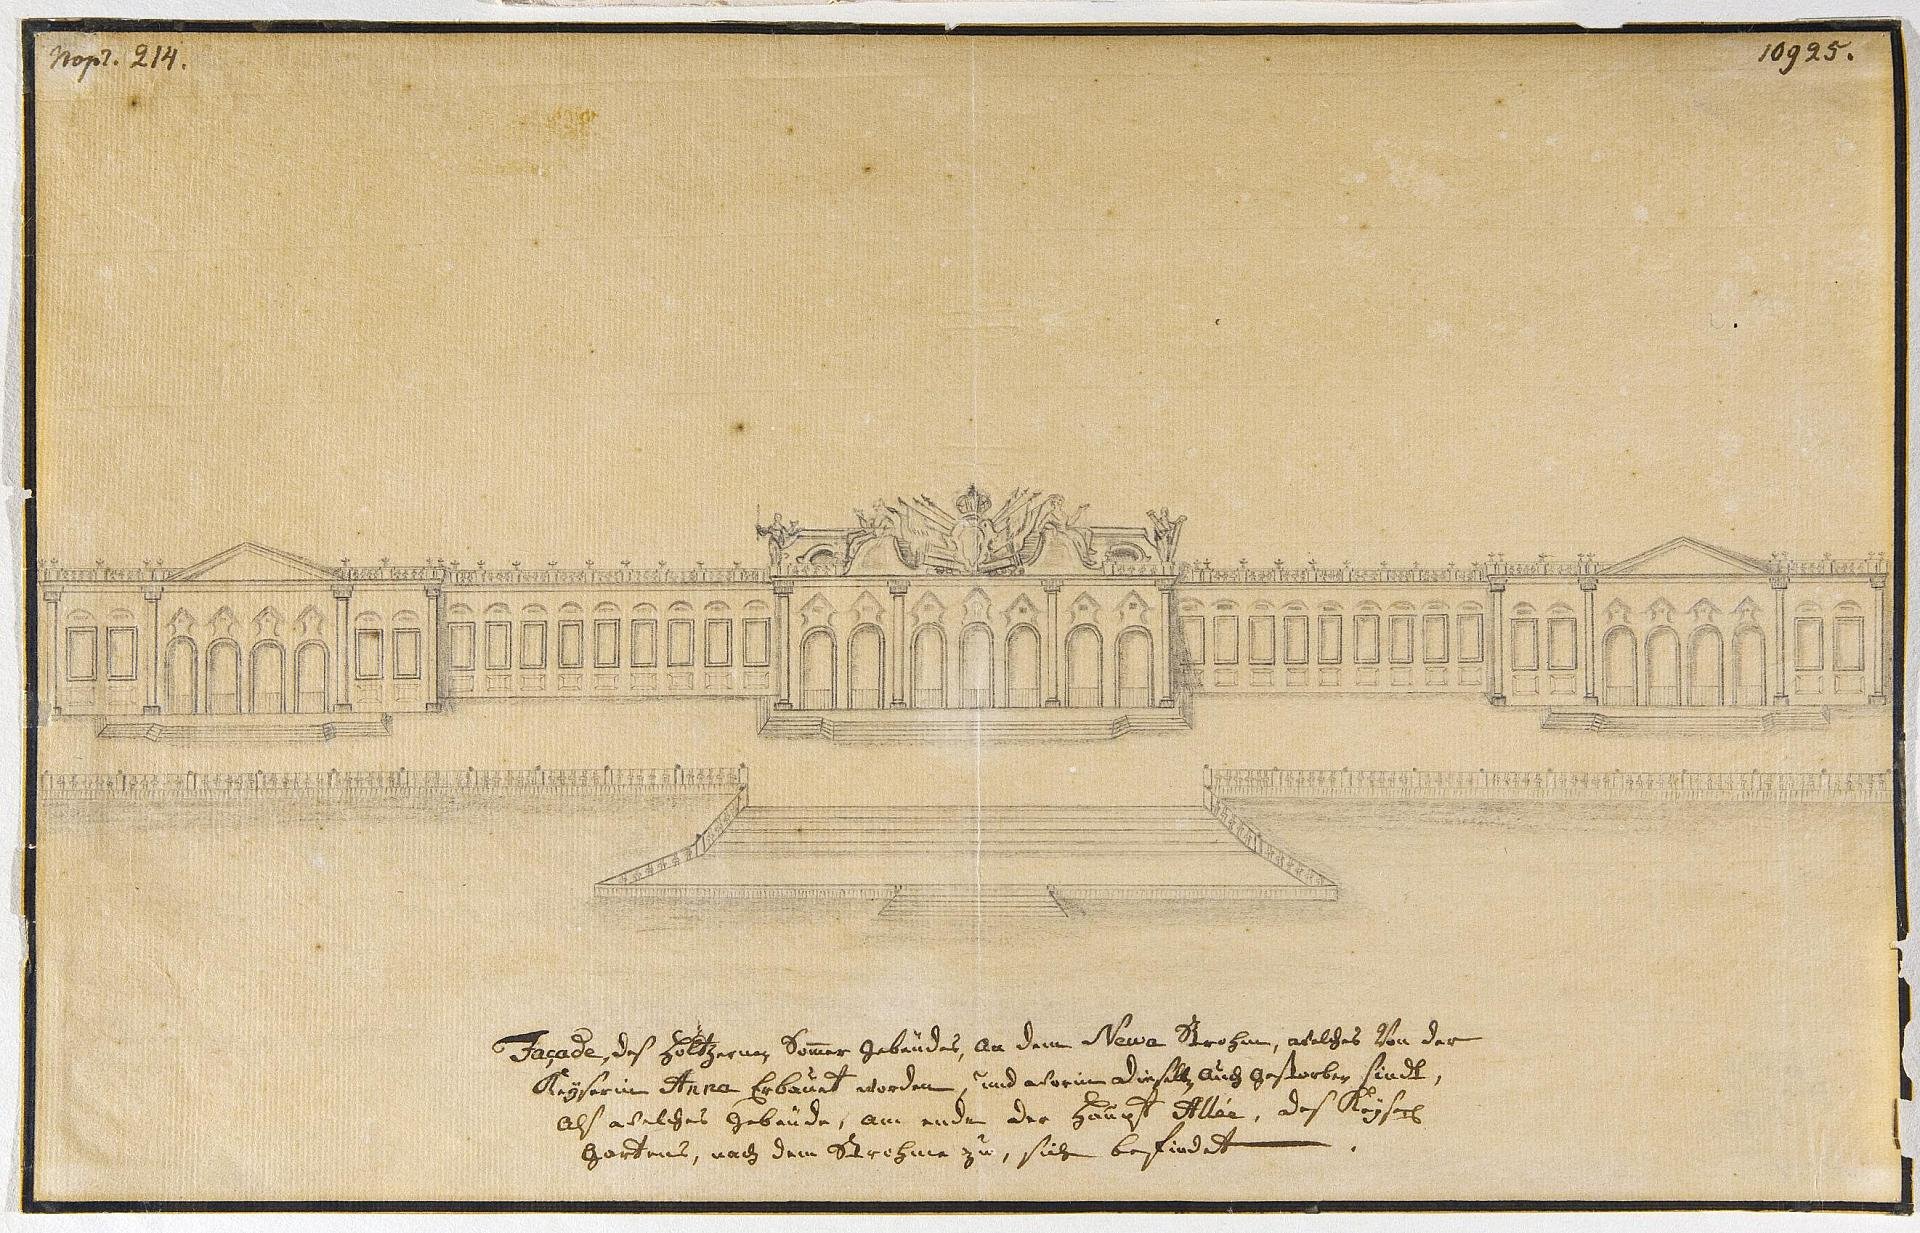 Порт. 214.
10925.
Façade, des höltzernen Sommer gebeüdes, an dem Newa Strohm, welches Von der
Keÿserin Anna Erbauet worden, und worin dieselbe auch gestorben sindt,
Als welches gebeüde, am ende der Haupt Allée, des Keÿserl
gartens, nach dem Strohme zu, sich befindet.